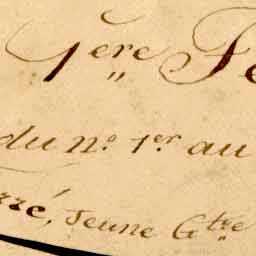 1ère Fe
du no. 1er. au
rré, Jeune Gtre